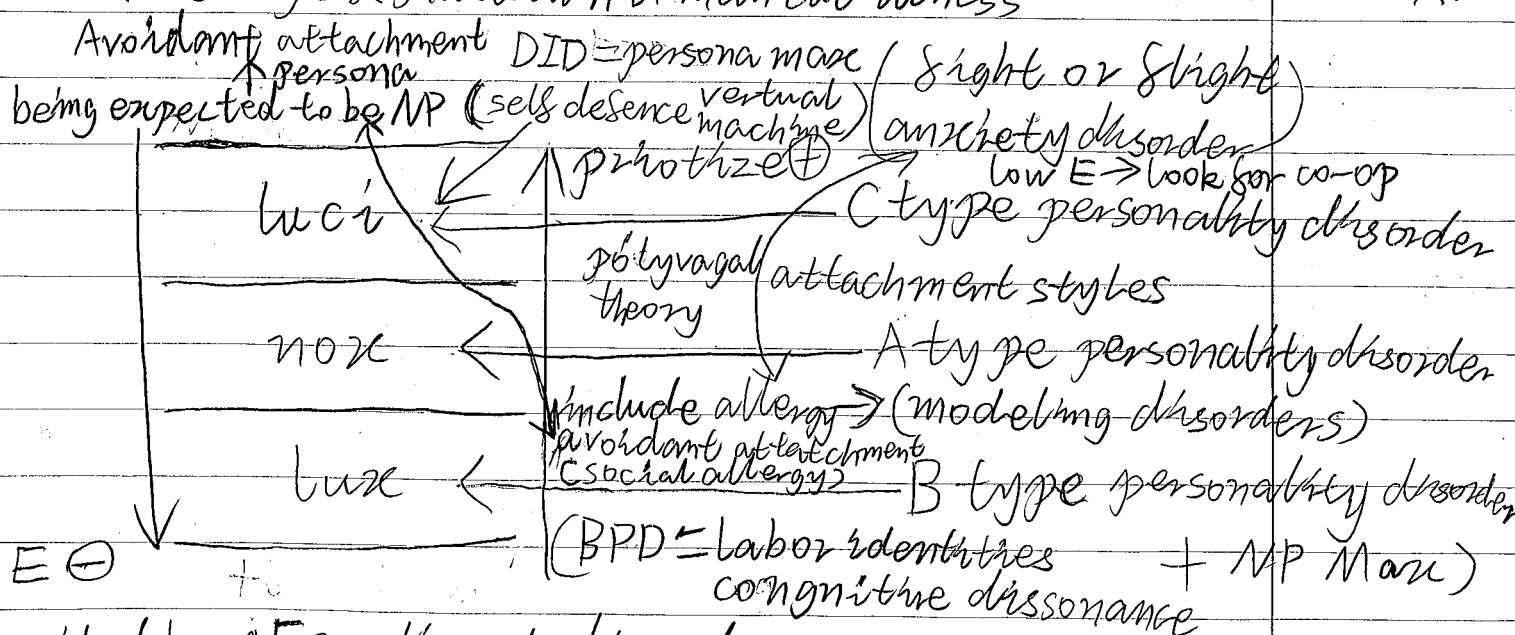 mental illness
Avoidant attachment DID=persona max (fight or flight
↑persona
being expected to be NP (self defence vertual machine) anxiety disorder)
priotize⊕ low E→look for co-op
luci ← C type personality disorder
polyvagal theory attachment styles
nox ← A type personality disorder
include allergy→(modeling disorders)
avoidant attatchment
(social allergy)
lux ← B type personality disorder
E⊖ (BPD=labor identities + NP Max)
congnitive dissonance